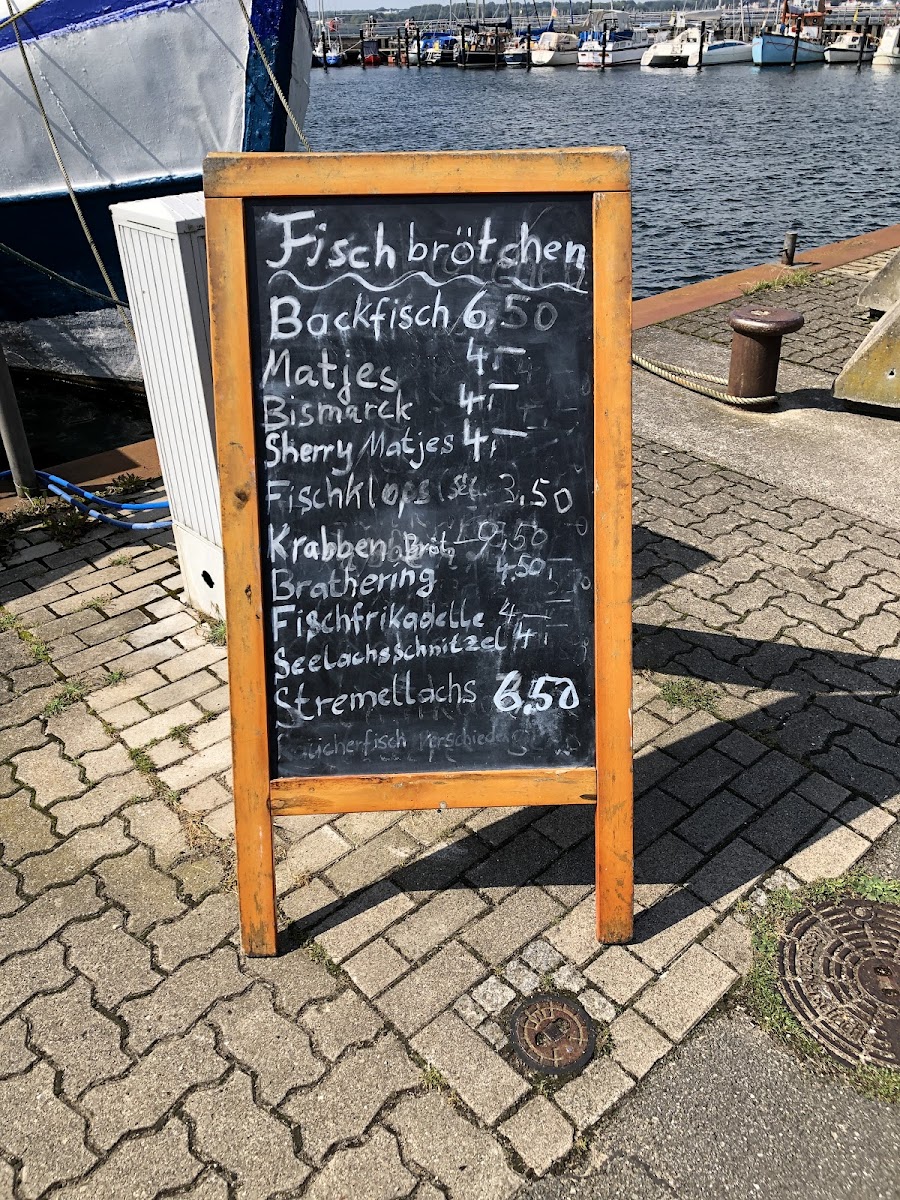 Fischbrötchen
Backfisch 6,50
Matjes 4,—
Bismarck 4,—
Sherry Matjes 4,—
Fischklops 3,50
Krabben Bröt
Brathering 4,50
Fischfrikadelle 4,—
Seelachsschnitzel 4,—
Stremellachs 6,50